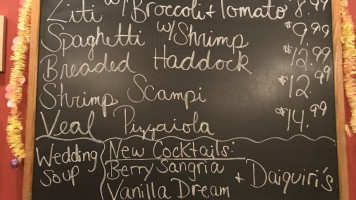 Ziti w/ Broccoli + Tomato 8.99
Spaghetti w/ Shrimp $9.99
Breaded Haddock $12.99
Shrimp Scampi $12.99
Veal Pizzaiola $14.99
Wedding Soup
New Cocktails:
Berry Sangria
Vanilla Dream + Daiquiri's